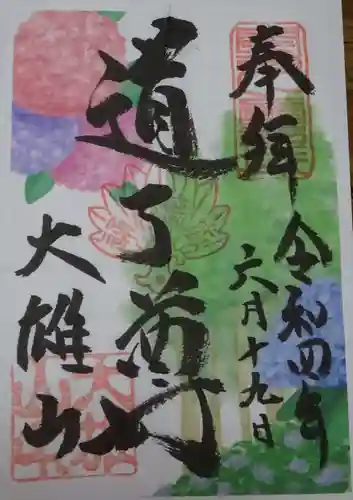 奉拝
令和四年
六月十九日
道了尊
大雄山